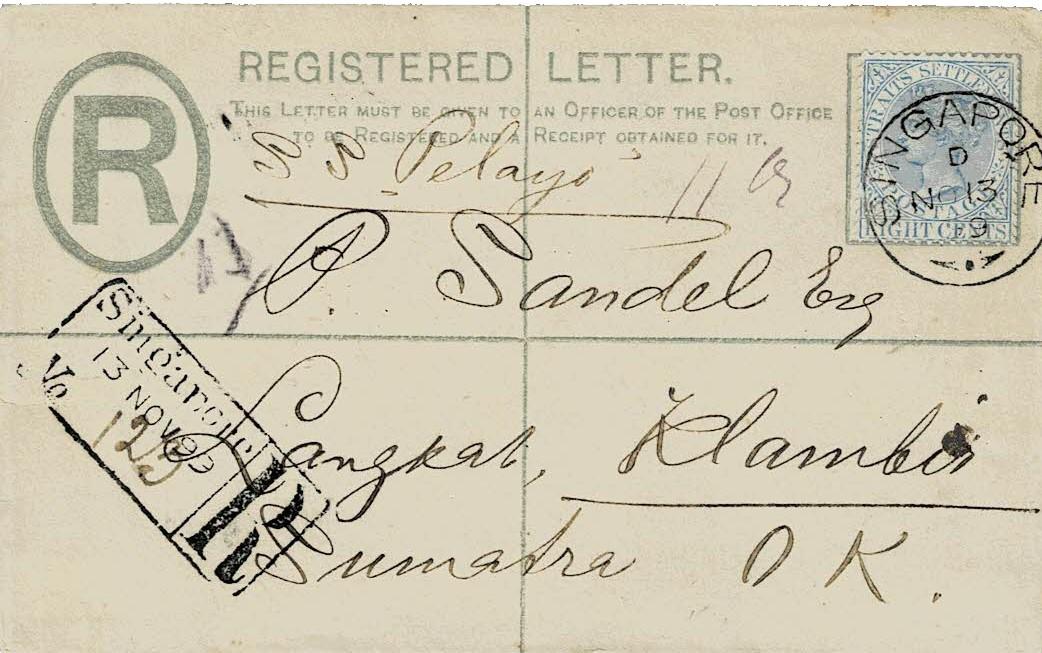 REGISTERED LETTER.
THIS LETTER MUST BE GIVEN TO AN OFFICER OF THE POST OFFICE
TO BE REGISTERED AND A RECEIPT OBTAINED FOR IT.
R
STRAITS SETTLEM
POSTAGE
EIGHT CENTS
SINGAPORE
D
NO 13
9
S S Pelayo
P. Sandel Esq
Singapore
13 NOV 93
No
R
Langkat, Klambir
Sumatra O K.